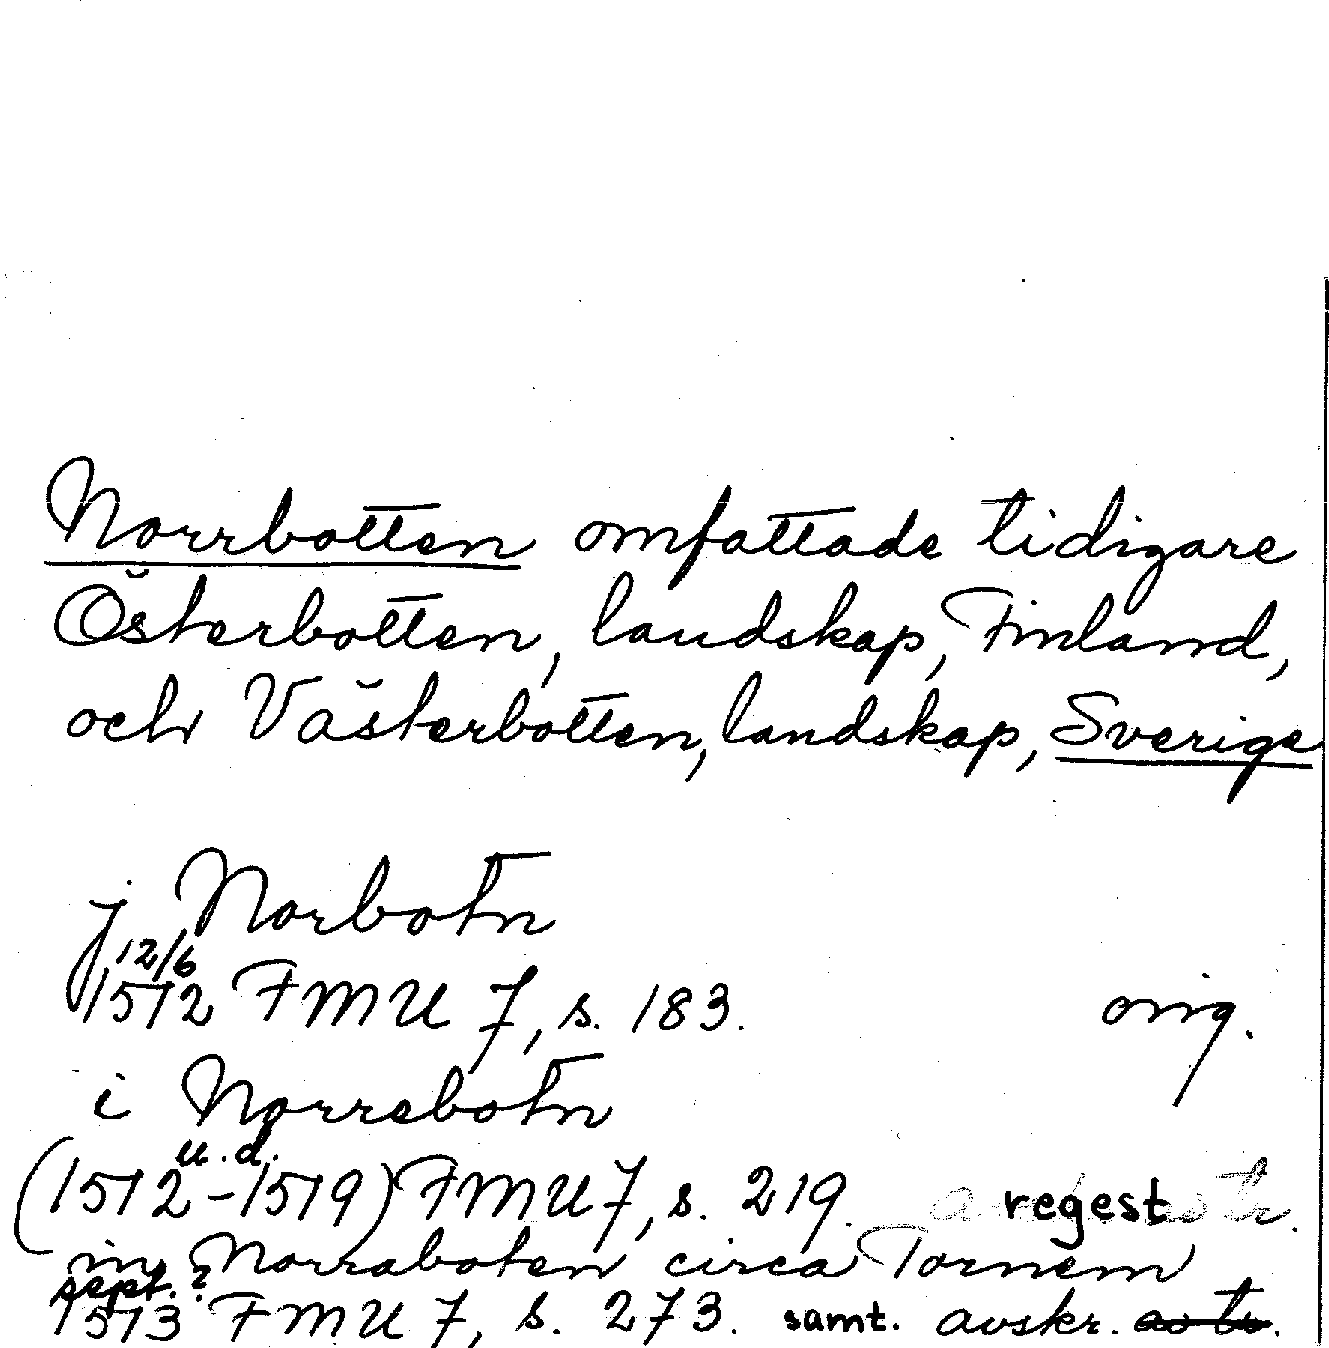 Norrbotten omfattade tidigare
Österbotten, landskap, Finland,
och Västerbotten, landskap, Sverige
j Norbotn
12/6
1512 FMU 7, s. 183. orig.
i Norrebotn
u.d.
(1512-1519) FMU 7, s. 219. regest
in Norraboten circa Tornem
sept.?
1513 FMU 7, s. 273. samt. avskr.